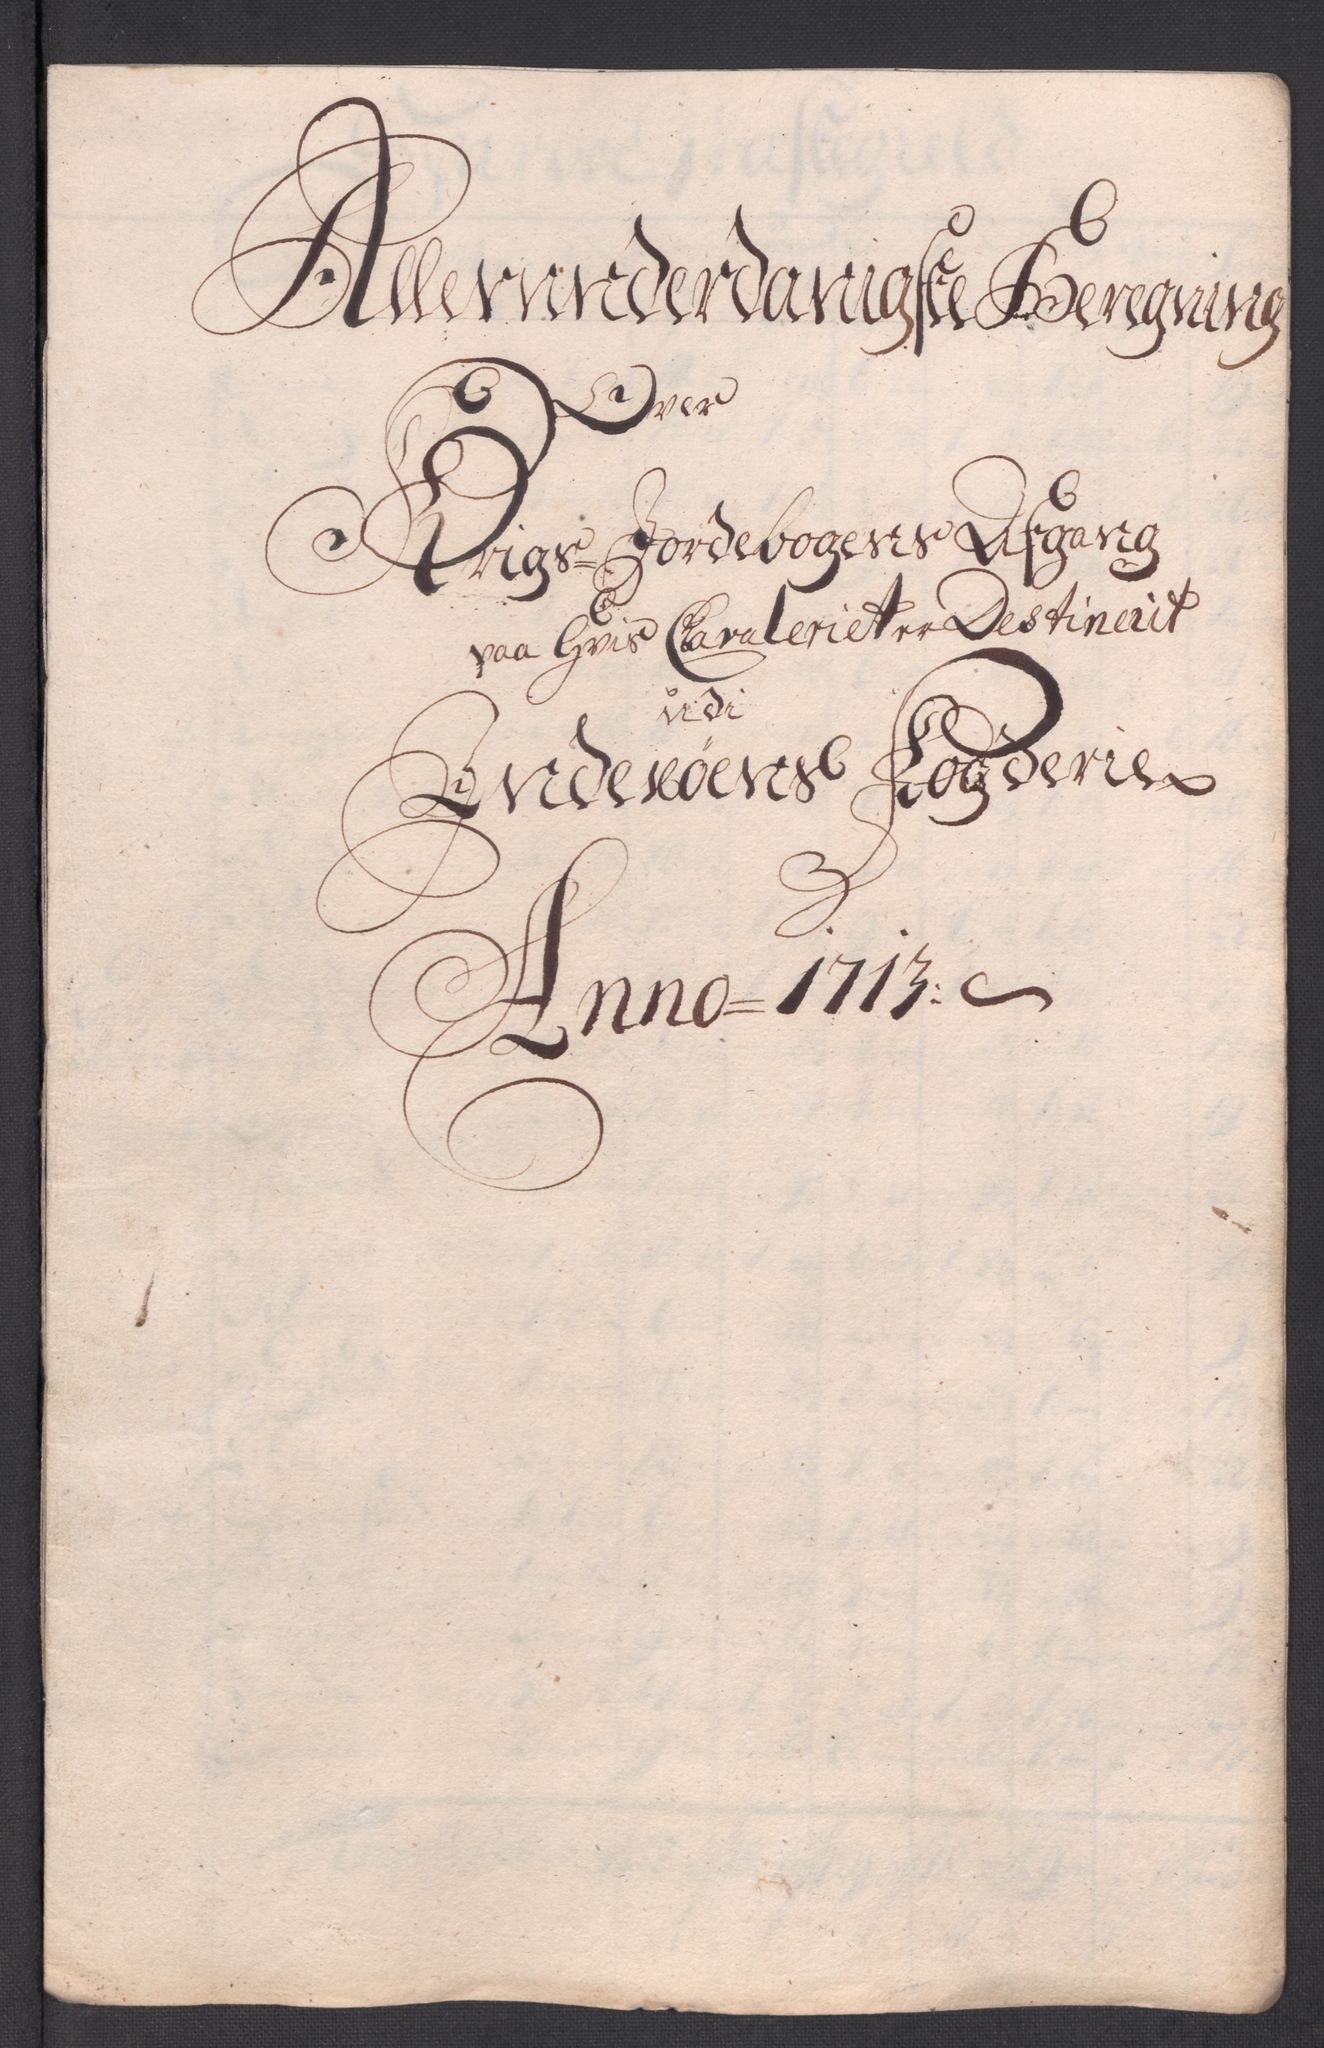 Allerunderdanigste Beregning
Over
Krigs-Jordebogens Afgang
paa hvis Cavaleriet er Destinerit
udi
Inderøens Fogderie
Anno = 1713: